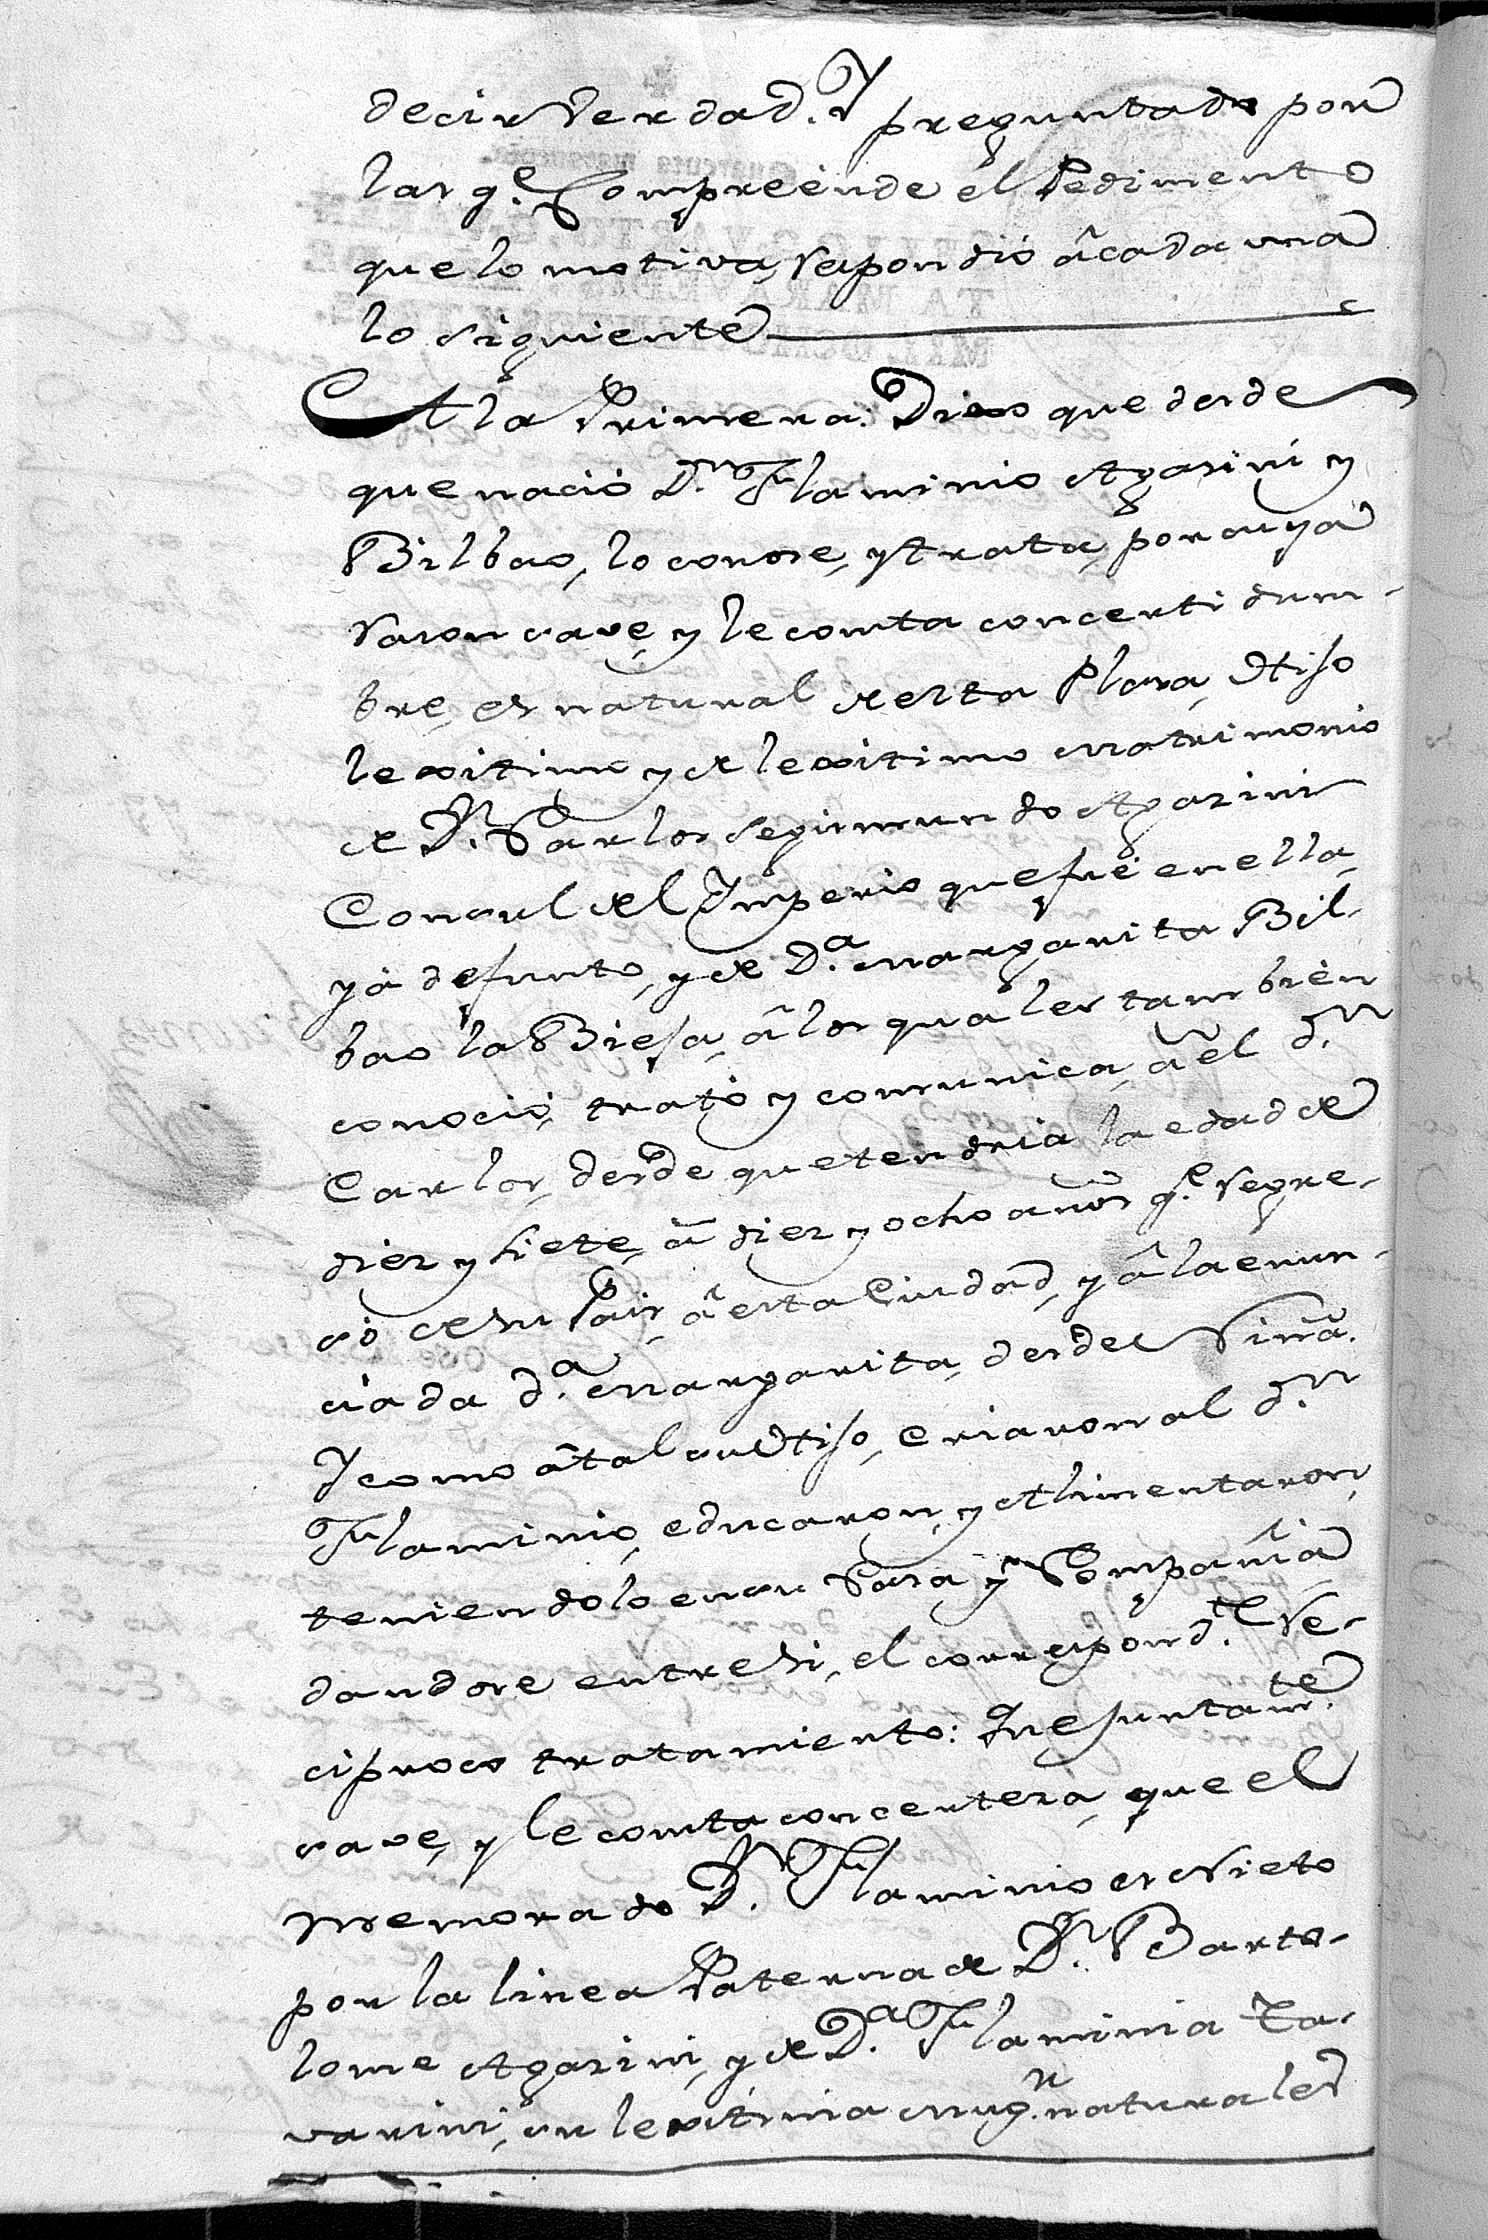 decir Verdad. Y preguntado por
las q.e Compreènde él Pedimento
que lo motiva, respondió â cada una
lo siguiente
A la Primera: Dixo que desde
que nació D.n Flaminio Agasini y
Bilbao, lo conose, y trata, por cuya
rason save, y le consta con certidum-
bre, es natural de esta Plaza, Hijo
lexitimo y de lexitimo Matrimonio
de D.n Carlos Segismundo Agasini
Consul del Imperio que fué en ella,
yá defunto, y de D.a Margarita Bil-
bao la Biesa, â los quales tambièn
conoció, trató y comunica, â el d.n
Carlos, desde que tendria la edad de
diez y siete, â diez y ocho años q.e regre-
só de su Pais, â esta Ciudad, y â la enun-
ciada d.a Margarita, desde Niña.
Y como â tal su Hijo, criaron al d.n
Flaminio, educaron, y Alimentaron,
teniendolo en su Casa y Compañia
dandose entre si, el correspond.te Re-
ciproco tratamiento: Que juntam.te
save, y le consta con certeza, que el
memorado D.n Flaminio es Nieto
por la linea Paterna de D.n Barto-
lome Agasini, y de D.a Flaminia Ta-
varini, su lexitima Mug.r naturales